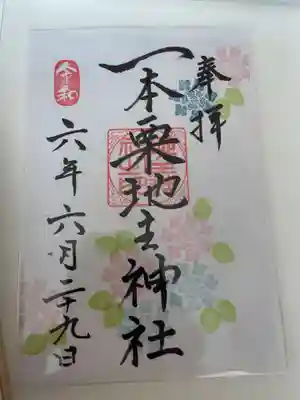 奉拝
一本栗地主神社
令和
六年六月二十九日